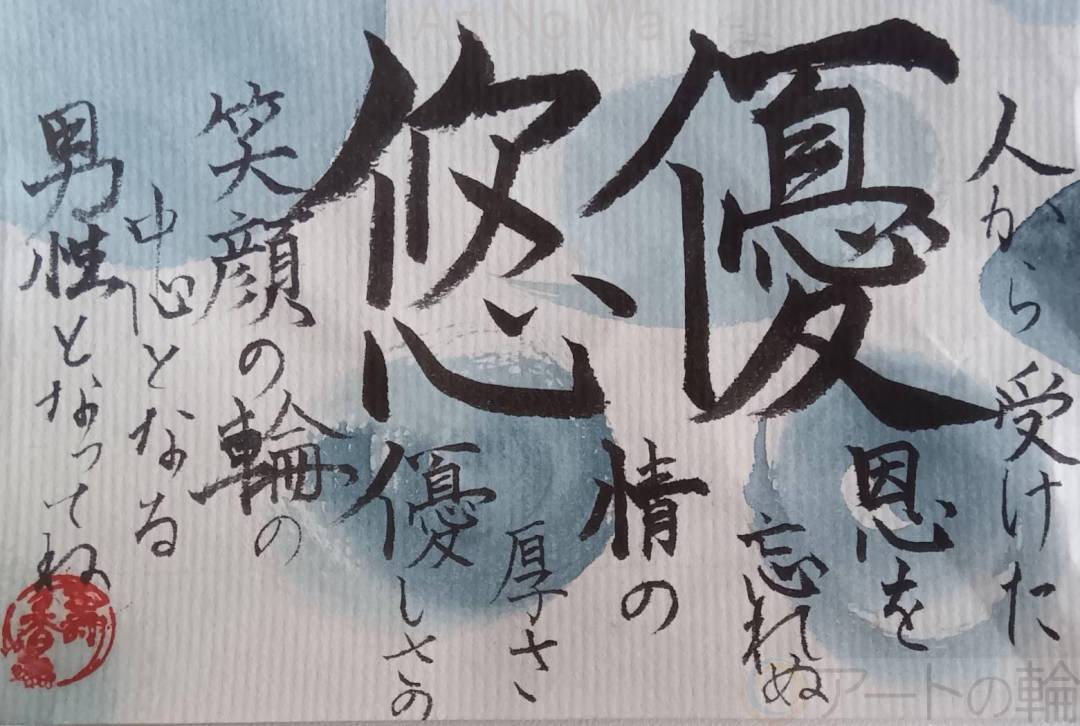 Art No Wa
優悠
人から受けた
恩を
忘れぬ
情の
厚さ、
優しさの
笑顔の輪の
中心となる
男性となってね
アートの輪